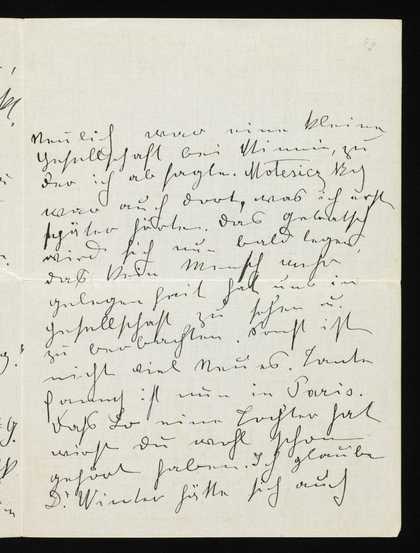 Neulich war eine kleine
Gesellschaft bei Minnie, zu
der ich absagte. Motesiczky
war auch dort, was ich erst
später hörte. Das Getratsch
wird sich nun bald legen,
da kein Mensch mehr
gelegenheit hat uns in
Gesellschaft zu sehen u.
zu beobachten. Sonst ist
nicht viel Neues. Tante
Fanny ist nun in Paris.
Daß Lo eine Tochter hat
wirst du wohl schon
gehört haben. Ich glaube
Dr Winter hätte sich auch